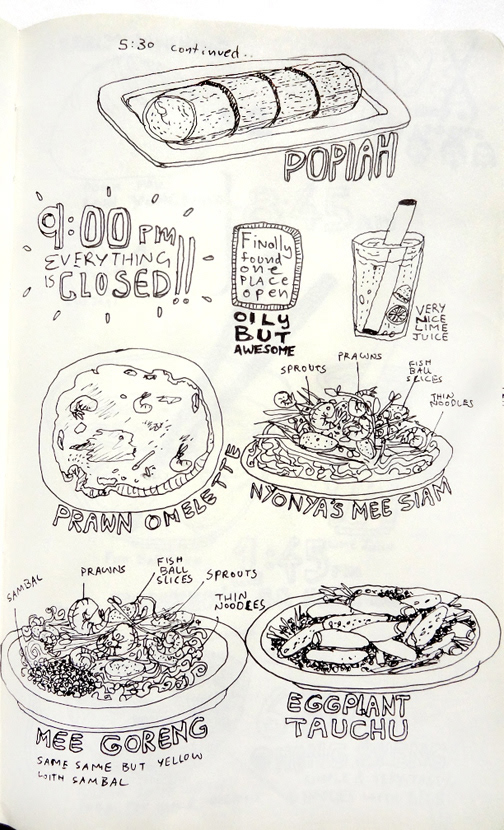 5:30 continued..
POPIAH
9:00 PM
EVERYTHING
IS CLOSED!!
Finally
found
one
PLACE
open
OILY
BUT
AWESOME
VERY
NICE
LIME
JUICE
PRAWN OMELETTE
SPROUTS
PRAWNS
FISH
BALL
SLICES
THIN
NOODLES
NYONYA'S MEE SIAM
SAMBAL
PRAWNS
FISH
BALL
SLICES
SPROUTS
THIN
NOODLES
MEE GORENG
SAME SAME BUT YELLOW
WITH SAMBAL
EGGPLANT
TAUCHU